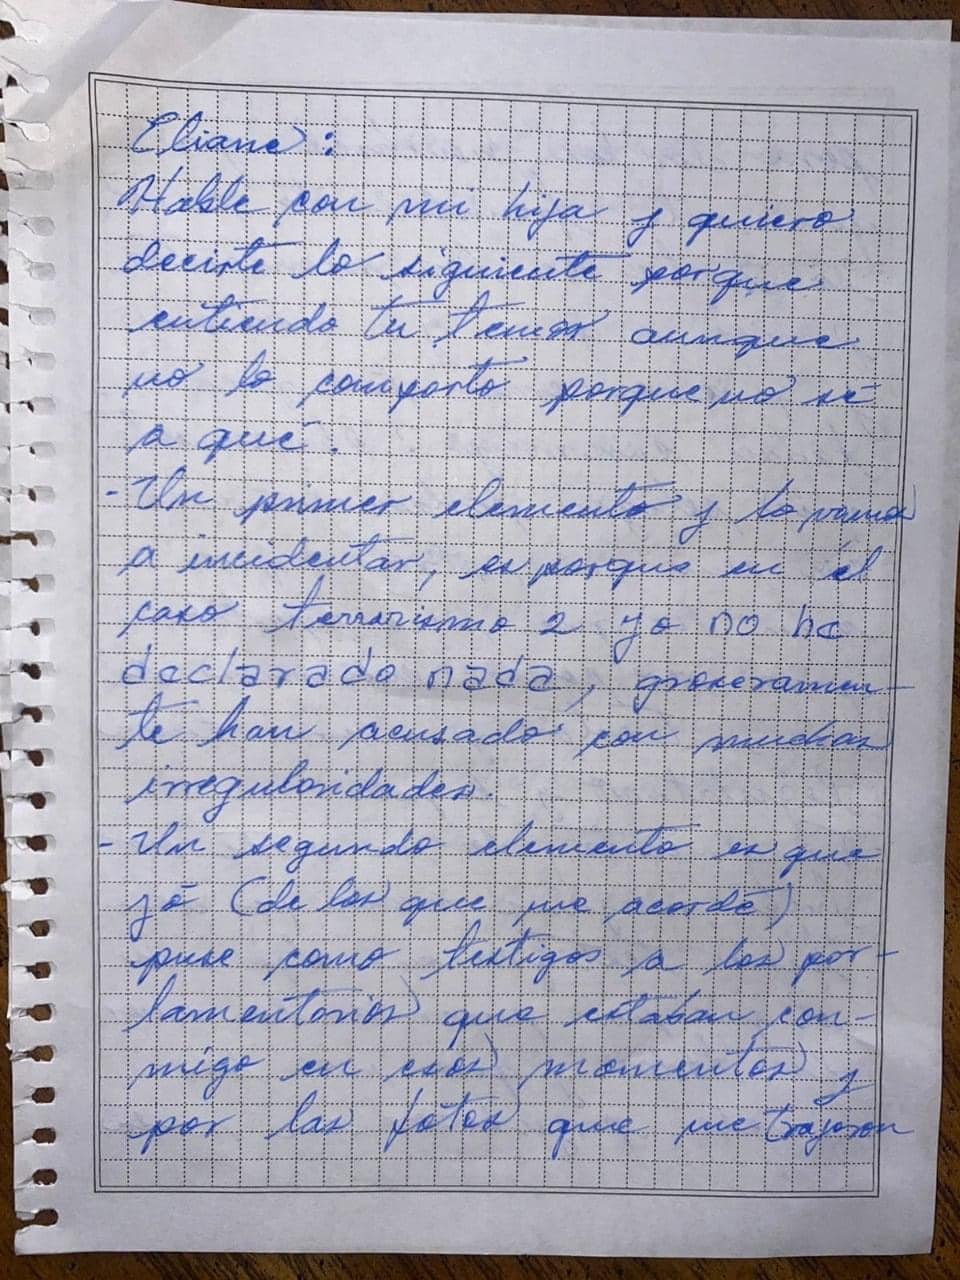 Eliane:
Hable con mi hija y quiero
decirte lo siguiente porque
entiendo tu temor aunque
no lo comparto porque no sé
a qué.
- Un primer elemento y lo vamos
a incidentar, es porque en el
caso terrorismo 2 yo no he
declarado nada, groseramen-
te han acusado con muchas
irregularidades.
- Un segundo elemento es que
yó (de los que me acordé)
puse como testigos a los par-
lamentarios que estaban con-
migo en esos momentos y
por las fotos que me trajeron